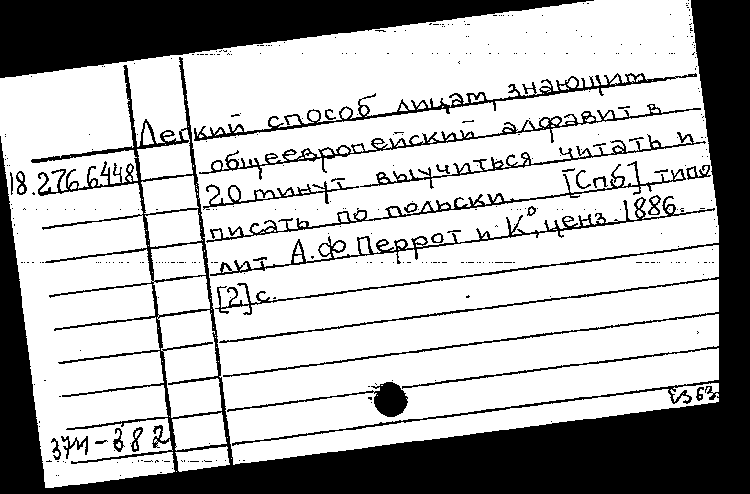 Легкий способ лицам, знающим
общеевропейский алфавит в
18.276.6448
20 минут выучиться читать и
писать по польски. [Спб.], типо
лит. А.Ф. Перрот и К°, ценз. 1886.
[2] с.
37М-382